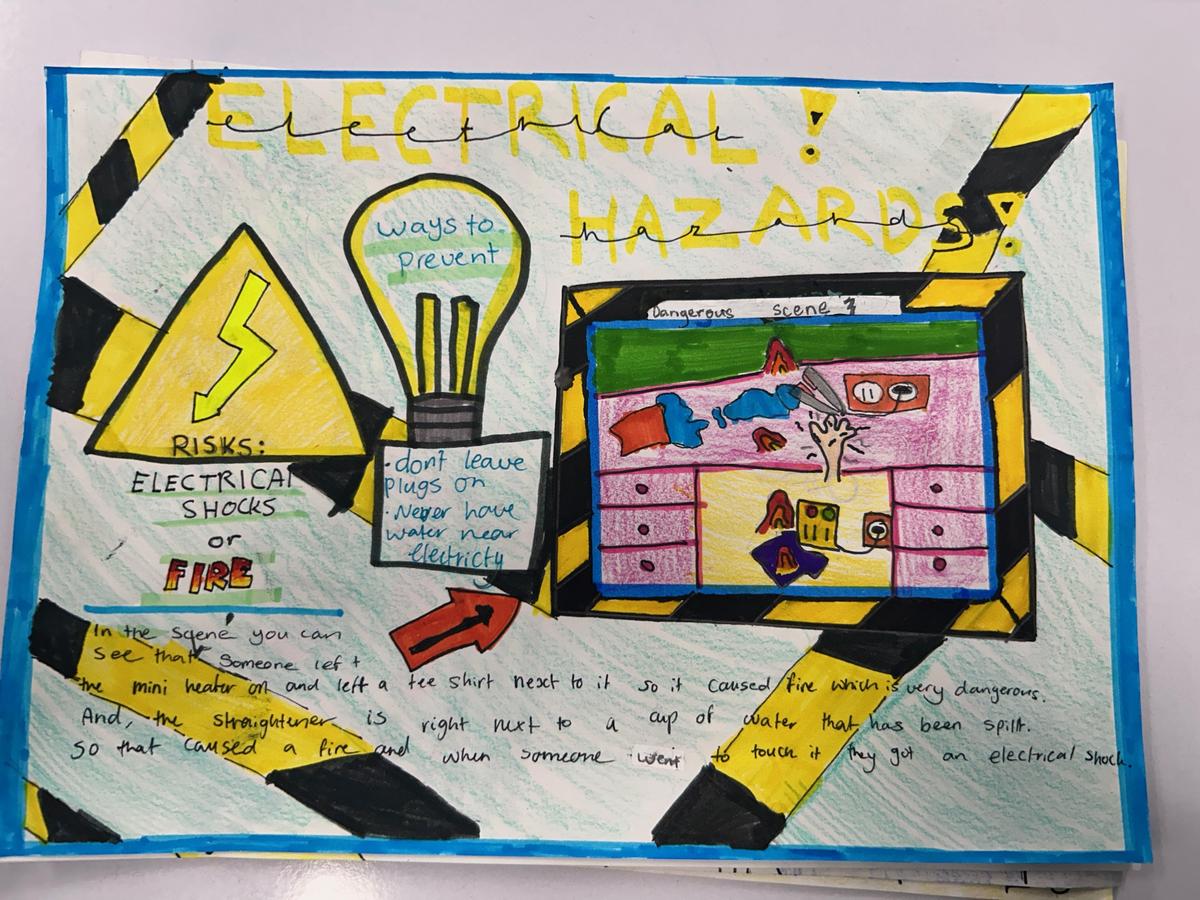 ELECTRICAL !
electrical
HAZARDS!
hazards
ways to
prevent
Dangerous scene
RISKS:
ELECTRICAL
SHOCKS
or
FIRE
· don't leave
plugs on
· Never have
water near
electricty
In the scene you can
see that someone left
the mini heater on and left a tee shirt next to it so it caused fire which is very dangerous.
And, the straightener is right next to a cup of water that has been spillt.
so that caused a fire and when someone went to touch it they got an electrical shock.